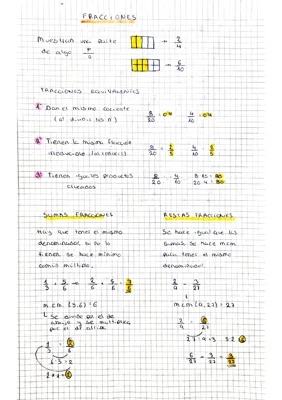 FRACCIONES
Muestran una parte → 2/4
de algo P/Q → 6/10
FRACCIONES EQUIVALENTES
1º Dan el mismo cociente 8/20 = 0'4 4/10 = 0'4
(al dividirlos)
2º Tienen la misma fracción 8/20 = 2/5 4/10 = 2/5
irreducible
3º Tienen iguales productos 8/20 = 4/10 8·10 = 80
cruzados 20·4 = 80
SUMAS FRACCIONES
Hay que tener el mismo
denominador, si no lo
tienen, se hace mínimo
común múltiplo.
1/3 + 5/6 → 2/6 + 5/6 = 7/6
m.c.m (3,6) = 6
Se divide por el de
abajo y se multiplica
por el de arriba
1/3 = 2/6
6:3 = 2
2 × 1 = 2
RESTAS FRACCIONES
Se hace igual que las
sumas, se hace m.c.m
para tener el mismo
denominador.
2/9 - 3/27
m.c.m (9,27) = 27
2/9 = 6/27
27:9 = 3 3·2 = 6
6/27 - 3/27 = 3/27